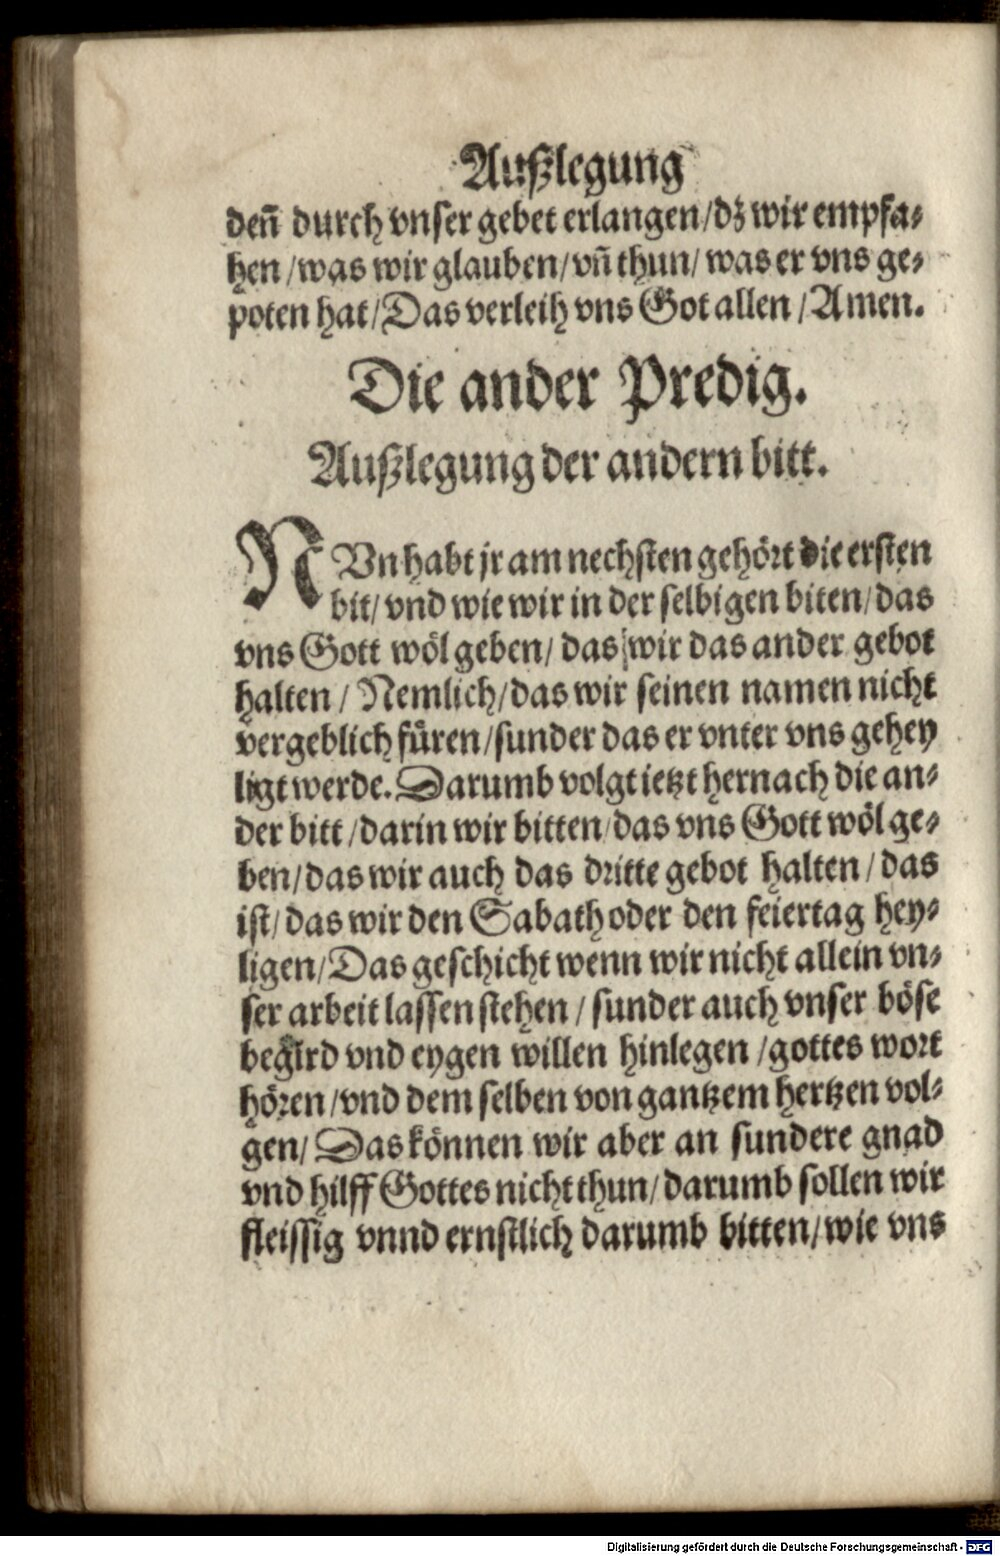 Außlegung
deñ durch vnser gebet erlangen/dz wir empfa⸗
hen/was wir glauben/vñ thun/was er vns ge⸗
poten hat/Das verleih vns Got allen/Amen.
Die ander Predig.
Außlegung der andern bitt.
NVn habt jr am nechsten gehört die ersten
bit/vnd wie wir in der selbigen biten/das
vns Gott wöl geben/das wir das ander gebot
halten/Nemlich/das wir seinen namen nicht
vergeblich füren/sunder das er vnter vns gehey
ligt werde. Darumb volgt ietzt hernach die an⸗
der bitt/darin wir bitten/das vns Gott wöl ge⸗
ben/das wir auch das dritte gebot halten/das
ist/das wir den Sabath oder den feiertag hey⸗
ligen/Das geschicht wenn wir nicht allein vn⸗
ser arbeit lassen stehen/sunder auch vnser böse
begird vnd eygen willen hinlegen/gottes wort
hören/vnd dem selben von gantzem hertzen vol⸗
gen/Das können wir aber an sundere gnad
vnd hilff Gottes nicht thun/darumb sollen wir
fleissig vnnd ernstlich darumb bitten/wie vns
Digitalisierung gefördert durch die Deutsche Forschungsgemeinschaft - DFG